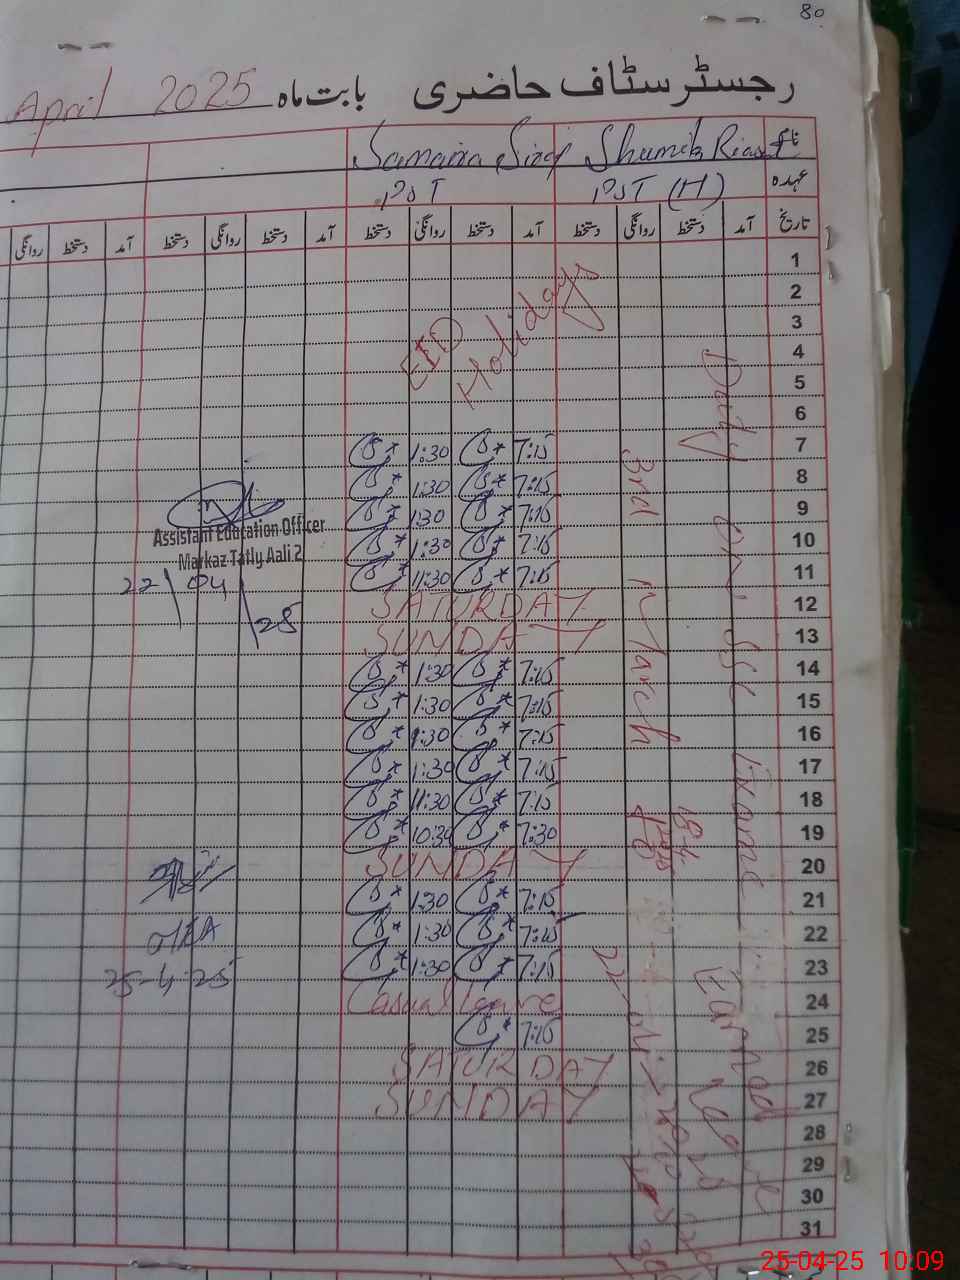 80
رجسٹر سٹاف حاضری بابت ماہ April 2025
نام Shumila Samaira
عہدہ PST (H) PST
تاریخ آمد دستخط روانگی دستخط آمد دستخط روانگی دستخط آمد دستخط روانگی دستخط آمد دستخط روانگی
1
2
3
4
5
6
EID Holidays
7 7:15 1:30
8 7:15 1:30
9 7:15 1:30
10 7:15 1:30
11 7:15 11:30
12 SATURDAY
13 SUNDAY
14 7:15 1:30
15 7:15 1:30
16 7:15 1:30
17 7:15 1:30
18 7:15 11:30
19 7:30 10:30
20 SUNDAY
21 7:15 1:30
22 7:15 1:30
23 7:15 1:30
24 Casual Leave
25 7:15
26 SATURDAY
27 SUNDAY
28
29
30
31
Duty on SSC Exam
3rd March
Earned
Assistant Education Officer
Markaz Tatly Aali 2
22/04/25
MEA
25-4-25
25-04-25 10:09